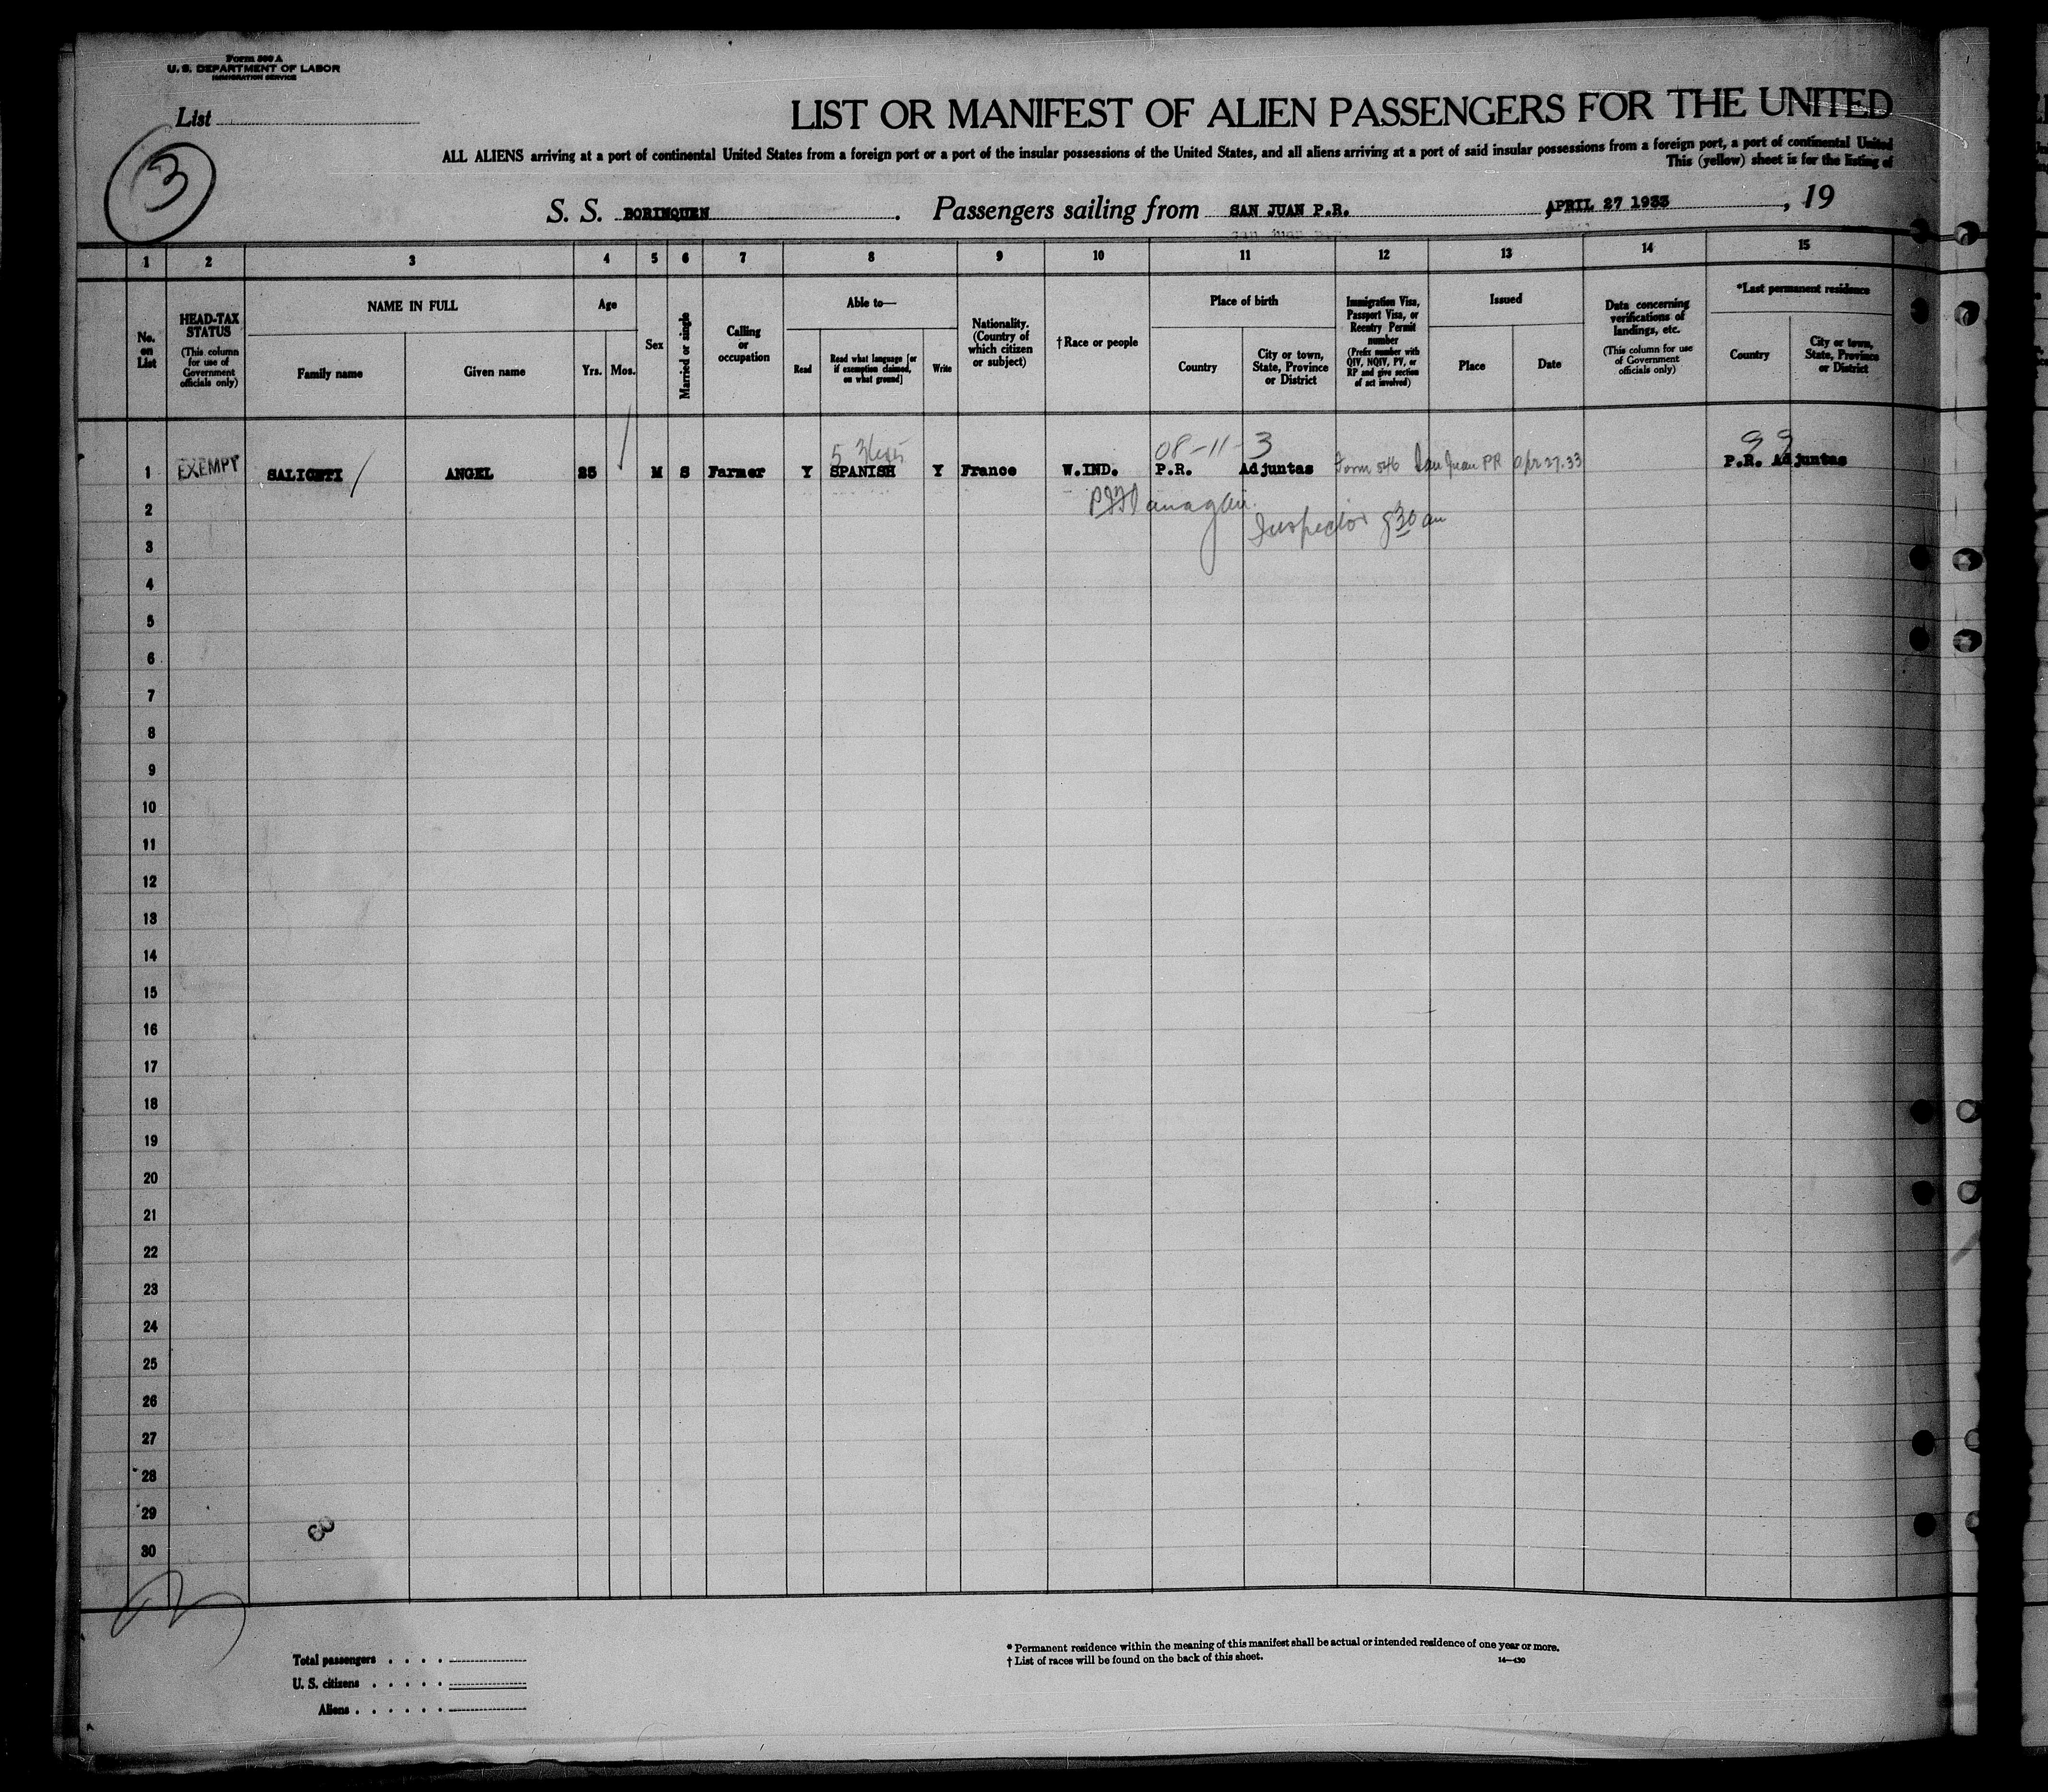 Form 500 A
U. S. DEPARTMENT OF LABOR
IMMIGRATION SERVICE
List
3
LIST OR MANIFEST OF ALIEN PASSENGERS FOR THE UNITED
ALL ALIENS arriving at a port of continental United States from a foreign port or a port of the insular possessions of the United States, and all aliens arriving at a port of said insular possessions from a foreign port, a port of continental United
This (yellow) sheet is for the listing of
S. S. BORINQUEN . Passengers sailing from SAN JUAN P.R. , APRIL 27 1933 , 19
1 2 3 4 5 6 7 8 9 10 11 12 13 14 15
No. on List
HEAD-TAX STATUS (This column for use of Government officials only)
NAME IN FULL
Family name
Given name
Age
Yrs.
Mos.
Sex
Married or single
Calling or occupation
Able to—
Read
Read what language [or if exemption claimed, on what ground]
Write
Nationality. (Country of which citizen or subject)
†Race or people
Place of birth
Country
City or town, State, Province or District
Immigration Visa, Passport Visa, or Reentry Permit number (Prefix number with QIV, NQIV, PV, or RP and give section of act involved)
Issued
Place
Date
Data concerning verifications of landings, etc. (This column for use of Government officials only)
*Last permanent residence
Country
City or town, State, Province or District
08-11-3 99
1 EXEMPT SALICETI ANGEL 25 M S Farmer Y SPANISH Y France W.IND. P.R. Adjuntas Form 546 San Juan PR Apr 27.33 P.R. Adjuntas
2
Inspector 8 30 am
3
4
5
6
7
8
9
10
11
12
13
14
15
16
17
18
19
20
21
22
23
24
25
26
27
28
29
30
* Permanent residence within the meaning of this manifest shall be actual or intended residence of one year or more.
† List of races will be found on the back of this sheet.
14—430
Total passengers . . . .
U. S. citizens . . . . .
Aliens . . . . . .